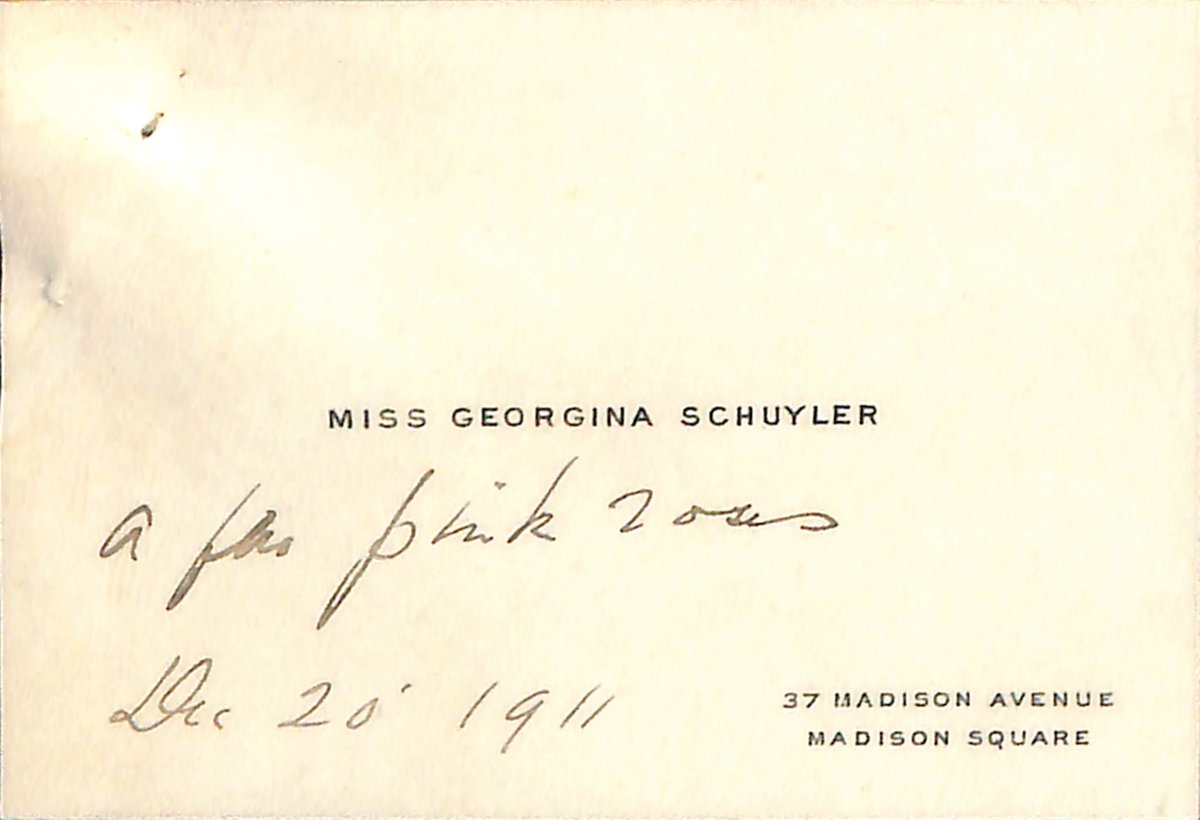 MISS GEORGINA SCHUYLER
a few pink roses
Dec 20 1911
37 MADISON AVENUE
MADISON SQUARE